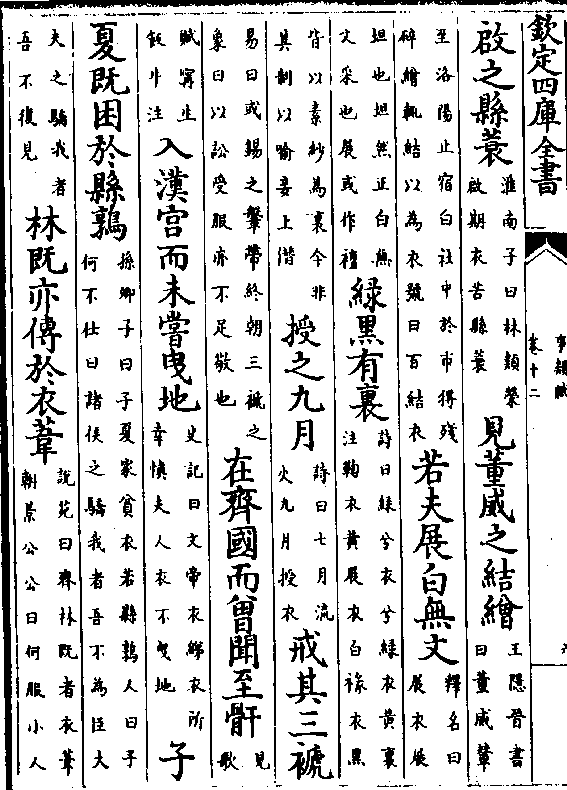 欽定四庫全書
事類賦
卷十二
啟之縣蓑
淮南子曰林類榮
啟期衣若縣蓑
見董威之結繒
王隱晉書
曰董威輦
至洛陽止宿白社中於市得殘
碎繒輒結以為衣號曰百結衣
若夫展白無文
釋名曰
展衣展
坦也坦然正白無
文采也展或作襢
緑黑有裏
詩曰緑兮衣兮緑衣黄裏
注鞠衣黄展衣白褖衣黑
皆以素紗為裏今非
其制以喻妾上僭
授之九月
詩曰七月流
火九月授衣
戒其三褫
易曰或錫之鞶帶終朝三褫之
象曰以訟受服亦不足敬也
在齊國而曾聞至骭
見
歌
賦甯生
飯牛注
入漢宫而未嘗曳地
史記曰文帝衣綈衣所
幸慎夫人衣不曳地
子
夏既困於縣鶉
孫卿子曰子夏家貧衣若縣鶉人曰子
何不仕曰諸侯之驕我者吾不為臣大
夫之驕我者
吾不復見
林既亦傳於衣葦
説苑曰齊林既者衣葦
朝景公公曰何服小人